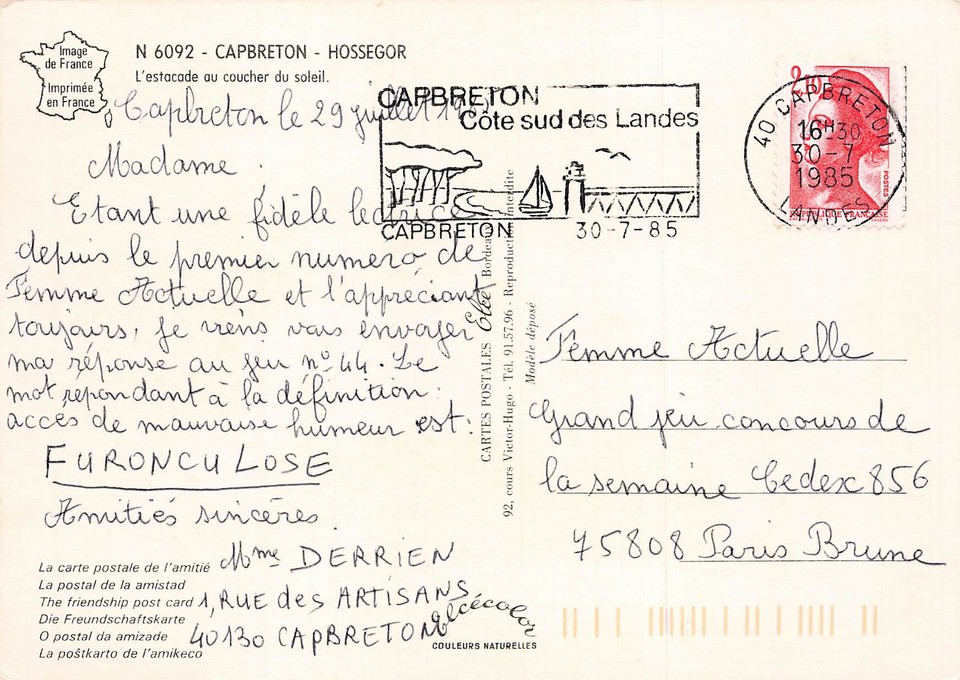 Image
de France
Imprimée
en France
N 6092 - CAPBRETON - HOSSEGOR
L'estacade au coucher du soleil.
Capbreton le 29 juillet
Madame.
Etant une fidèle lectrice
depuis le premier numero de
Femme Actuelle et l'appréciant
toujours, je viens vous envoyer
ma réponse au jeu n° 44. Le
mot répondant à la définition:
accès de mauvaise humeur est:
FURONCULOSE
Amitiés sincères.
Mme DERRIEN
1, RUE des ARTISANS
40130 CAPBRETON
La carte postale de l'amitié
La postal de la amistad
The friendship post card
Die Freundschaftskarte
O postal da amizade
La poŝtkarto de l'amikeco
CAPBRETON
Côte sud des Landes
CAPBRETON 30-7-85
40 CAPBRETON
16H30
30-7
1985
LANDES
2,10
POSTES
REPUBLIQUE FRANÇAISE
CARTES POSTALES Elcé Bordeaux
92, cours Victor-Hugo - Tél. 91.57.96 - Reproduction Interdite
Modèle déposé
Femme Actuelle
Grand jeu concours de
la semaine Cedex 856
75808 Paris Brune
Elcécolor
COULEURS NATURELLES